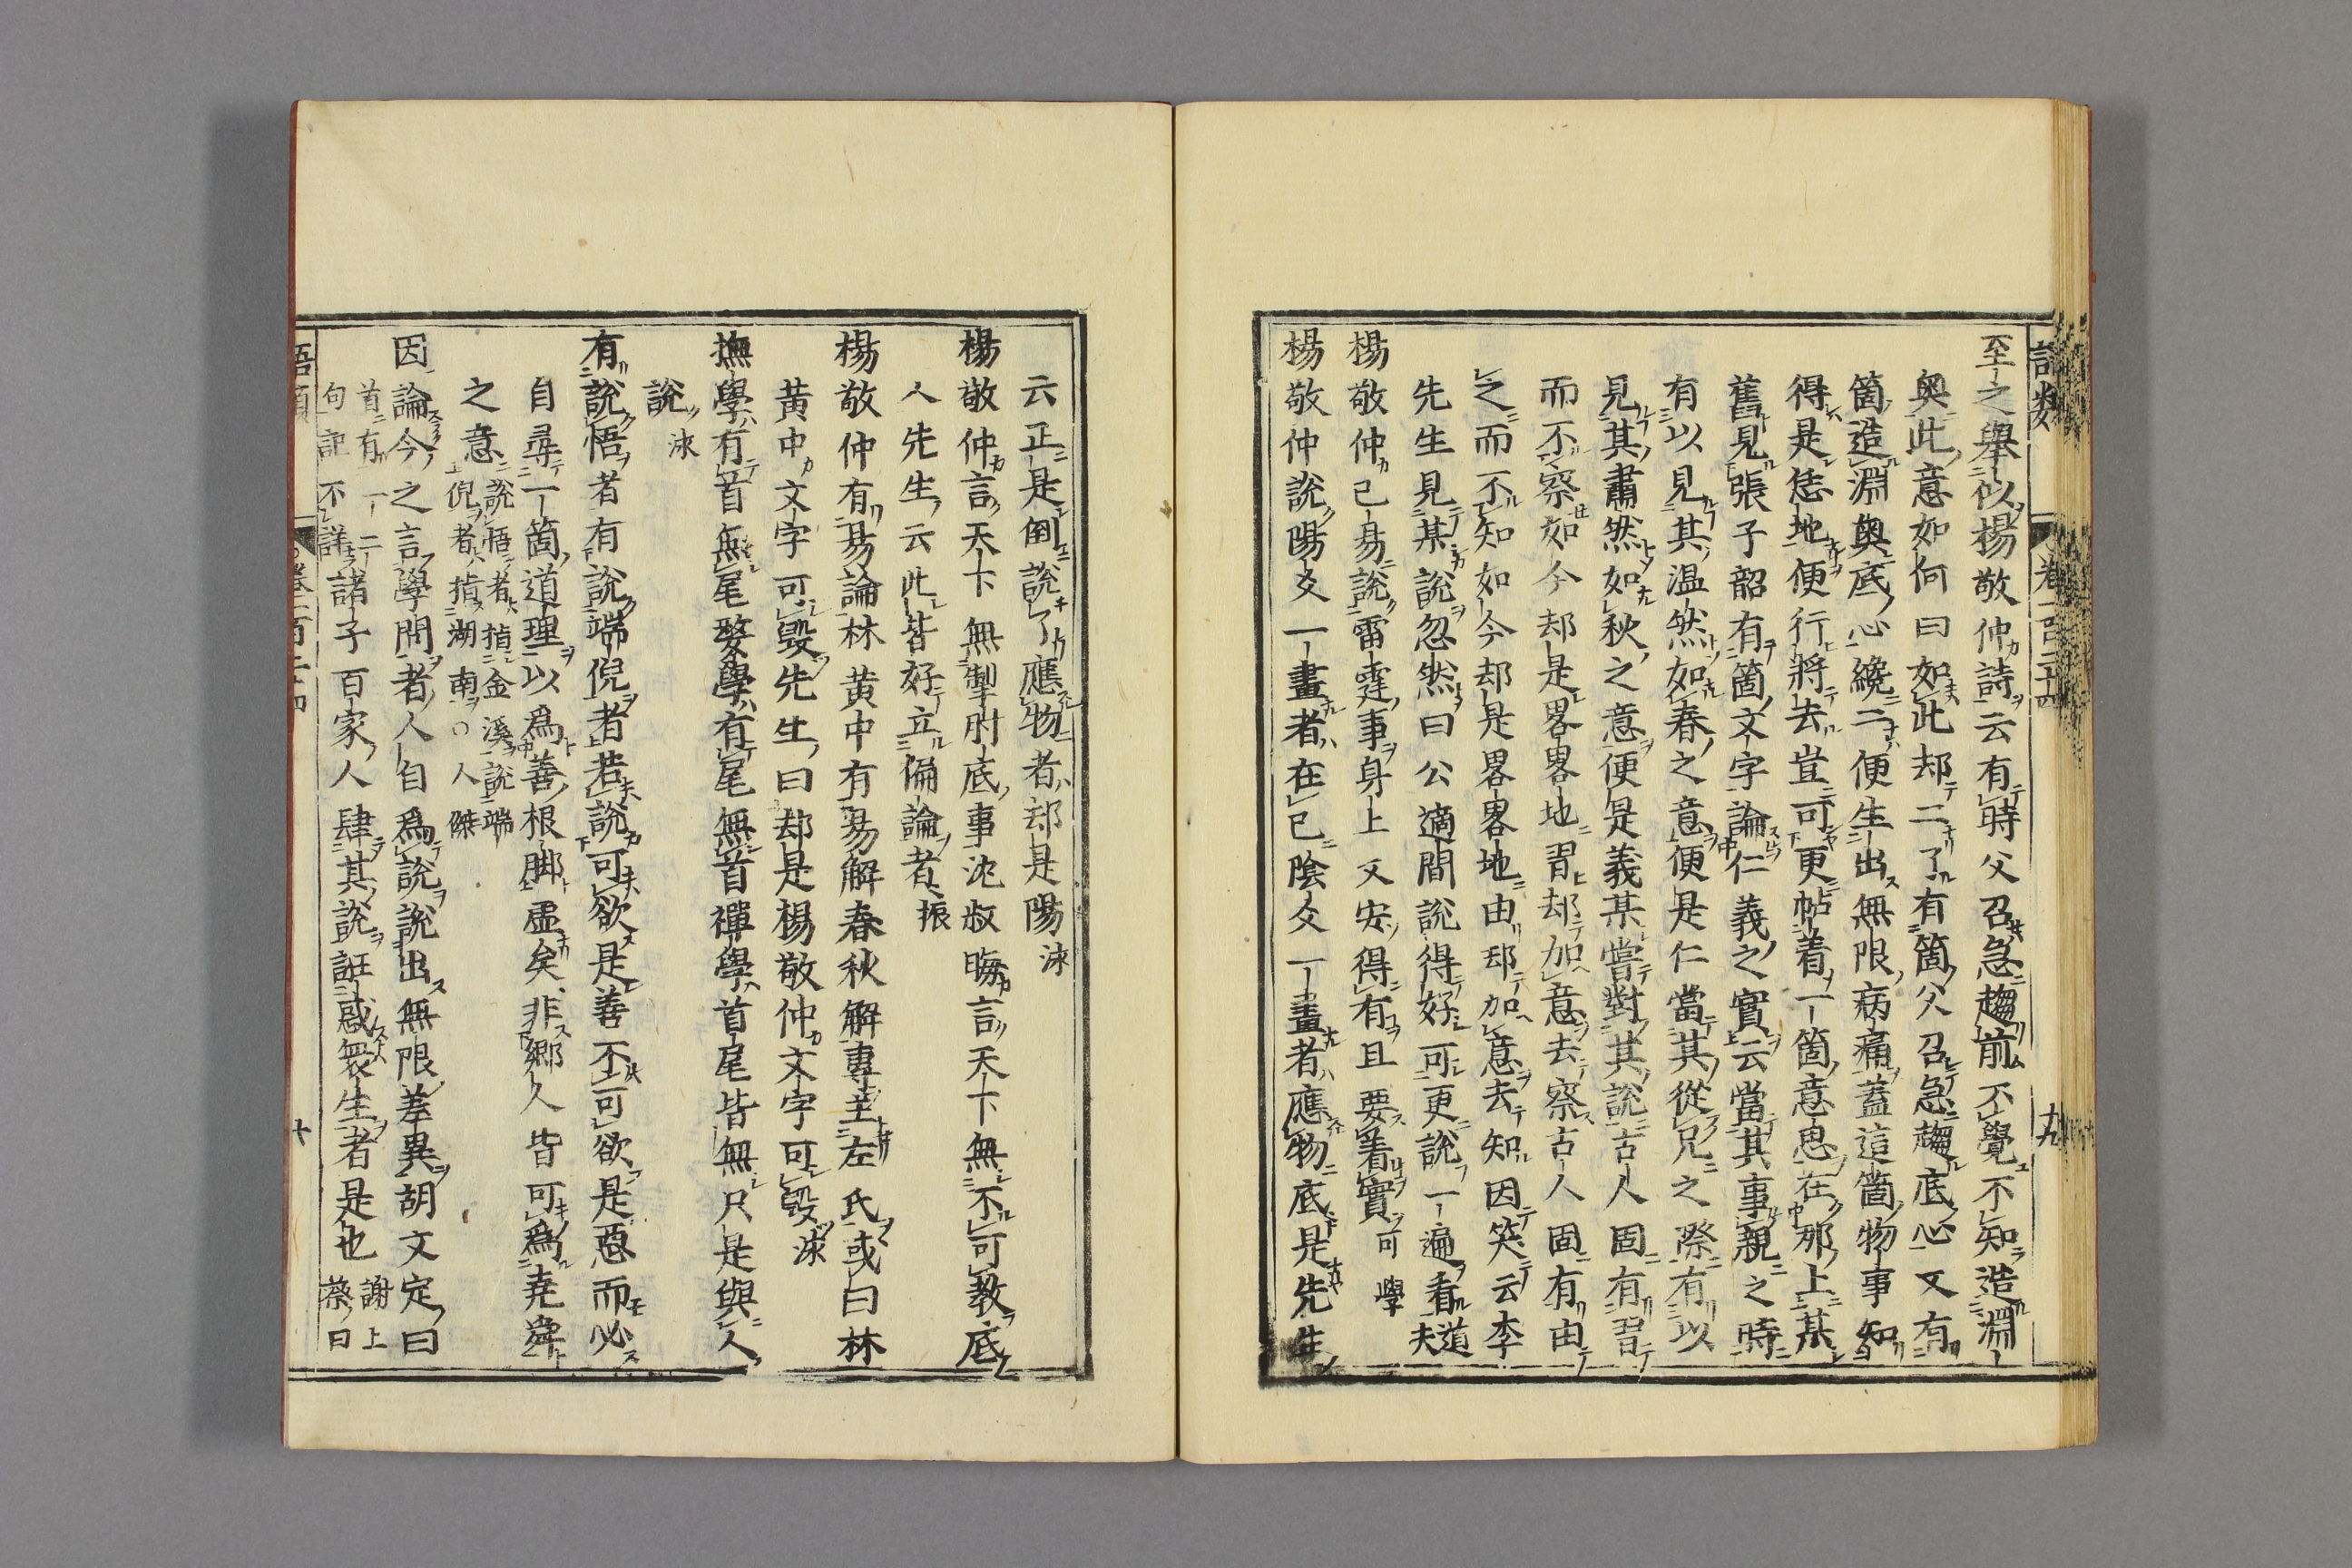 至之舉似楊敬仲詩云有時父召急趨前不覺不知造淵
奥此意如何曰如此却二了有箇父召急趨底心又有
箇造淵奥底心纔二便生出無限病痛蓋這箇物事知
得是恁地便行將去豈可更帖着一箇意思在那上某
舊見張子韶有箇文字論仁義之實云當其事親之時
有以見其温然如春之意便是仁當其從兄之際有以
見其肅然如秋之意便是義某嘗對其說古人固有習
而不察如今却是畧畧地習却加意去察古人固有由
之而不知如今却是畧畧地由却加意去知因笑云李
先生見某說忽然曰公適間說得好可更說一遍看道夫
楊敬仲己易說雷霆事身上又安得有且要着實可學
楊敬仲說陽爻一畫者在己陰爻一畫者應物底是先生
云正是倒說了應物者却是陽泳
楊敬仲言天下無掣肘底事沈叔晦言天下無不可教底
人先生云此皆好立偏論者振
楊敬仲有易論林黄中有易解春秋解專主左氏或曰林
黄中文字可毀先生曰却是楊敬仲文字可毀泳
撫學有首無尾婺學有尾無首禪學首尾皆無只是與人
說泳
有說悟者有說端倪者若說可欲是善不可欲是惡而必
自尋一箇道理以爲善根脚虚矣非郷人皆可爲堯舜
之意說悟者指金溪說端倪者指湖南〇人傑
因論今之言學問者人自爲說說出無限差異胡文定曰
首有一二句記不詳諸子百家人肆其說誑惑衆生者是也謝上蔡曰